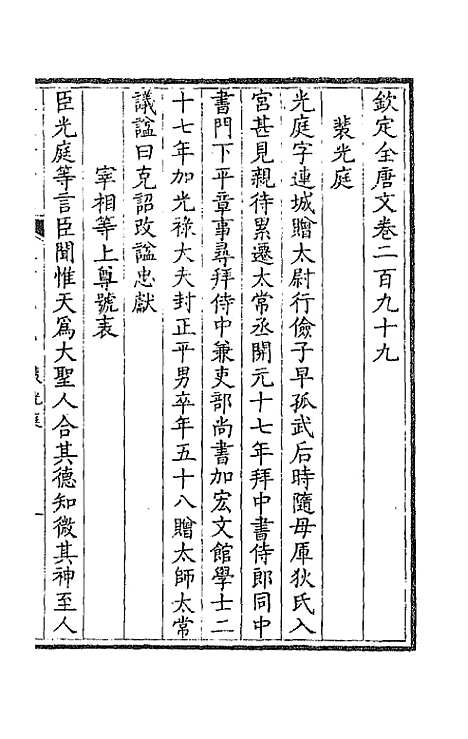 欽定全唐文卷二百九十九
裴光庭
光庭字連城贈太尉行儉子早孤武后時隨母庫狄氏入
宮甚見親待累遷太常丞開元十七年拜中書侍郎同中
書門下平章事尋拜侍中兼吏部尚書加宏文館學士二
十七年加光祿大夫封正平男卒年五十八贈太師太常
議謚曰克詔改謚忠獻
宰相等上尊號表
臣光庭等言臣聞惟天爲大聖人合其德知微其神至人